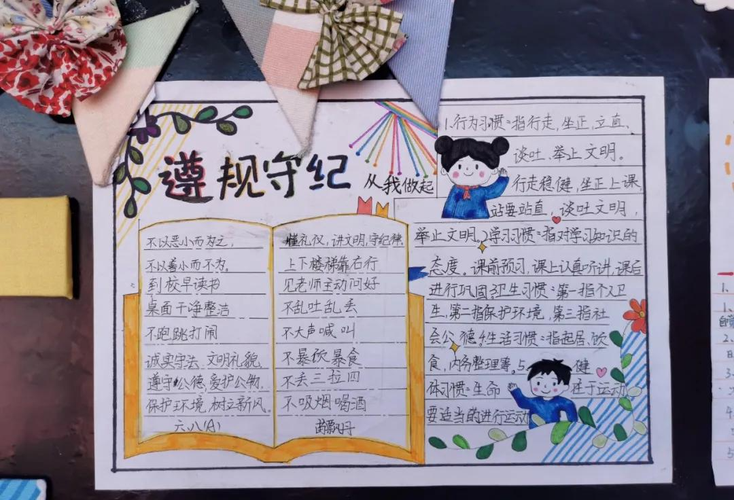 遵规守纪 从我做起
不以恶小而为之，
不以善小而不为。
到校早读书
桌面干净整洁
不跑跳打闹
诚实守法、文明礼貌、
遵守公德、爱护公物、
保护环境，树立新风。
六、八(A)
懂礼仪，讲文明，守纪律。
上下楼梯靠右行
见老师主动问好
不乱吐乱丢
不大声喊叫
不暴饮暴食
不丢三拉四
不吸烟喝酒
1.行为习惯：指行走，坐正，立直、
谈吐，举止文明。
行走稳健，坐正上课
站要站直，谈吐文明，
举止文明。2学习习惯：指对学习知识的
态度。课前预习，课上认真听讲，课后
进行巩固3卫生习惯：第一指个人卫
生，第二指保护环境，第三指社
会公德4生活习惯：指起居，饮
食，内务整理等。5 健
体习惯：生命 在于运动
要适当的进行运动